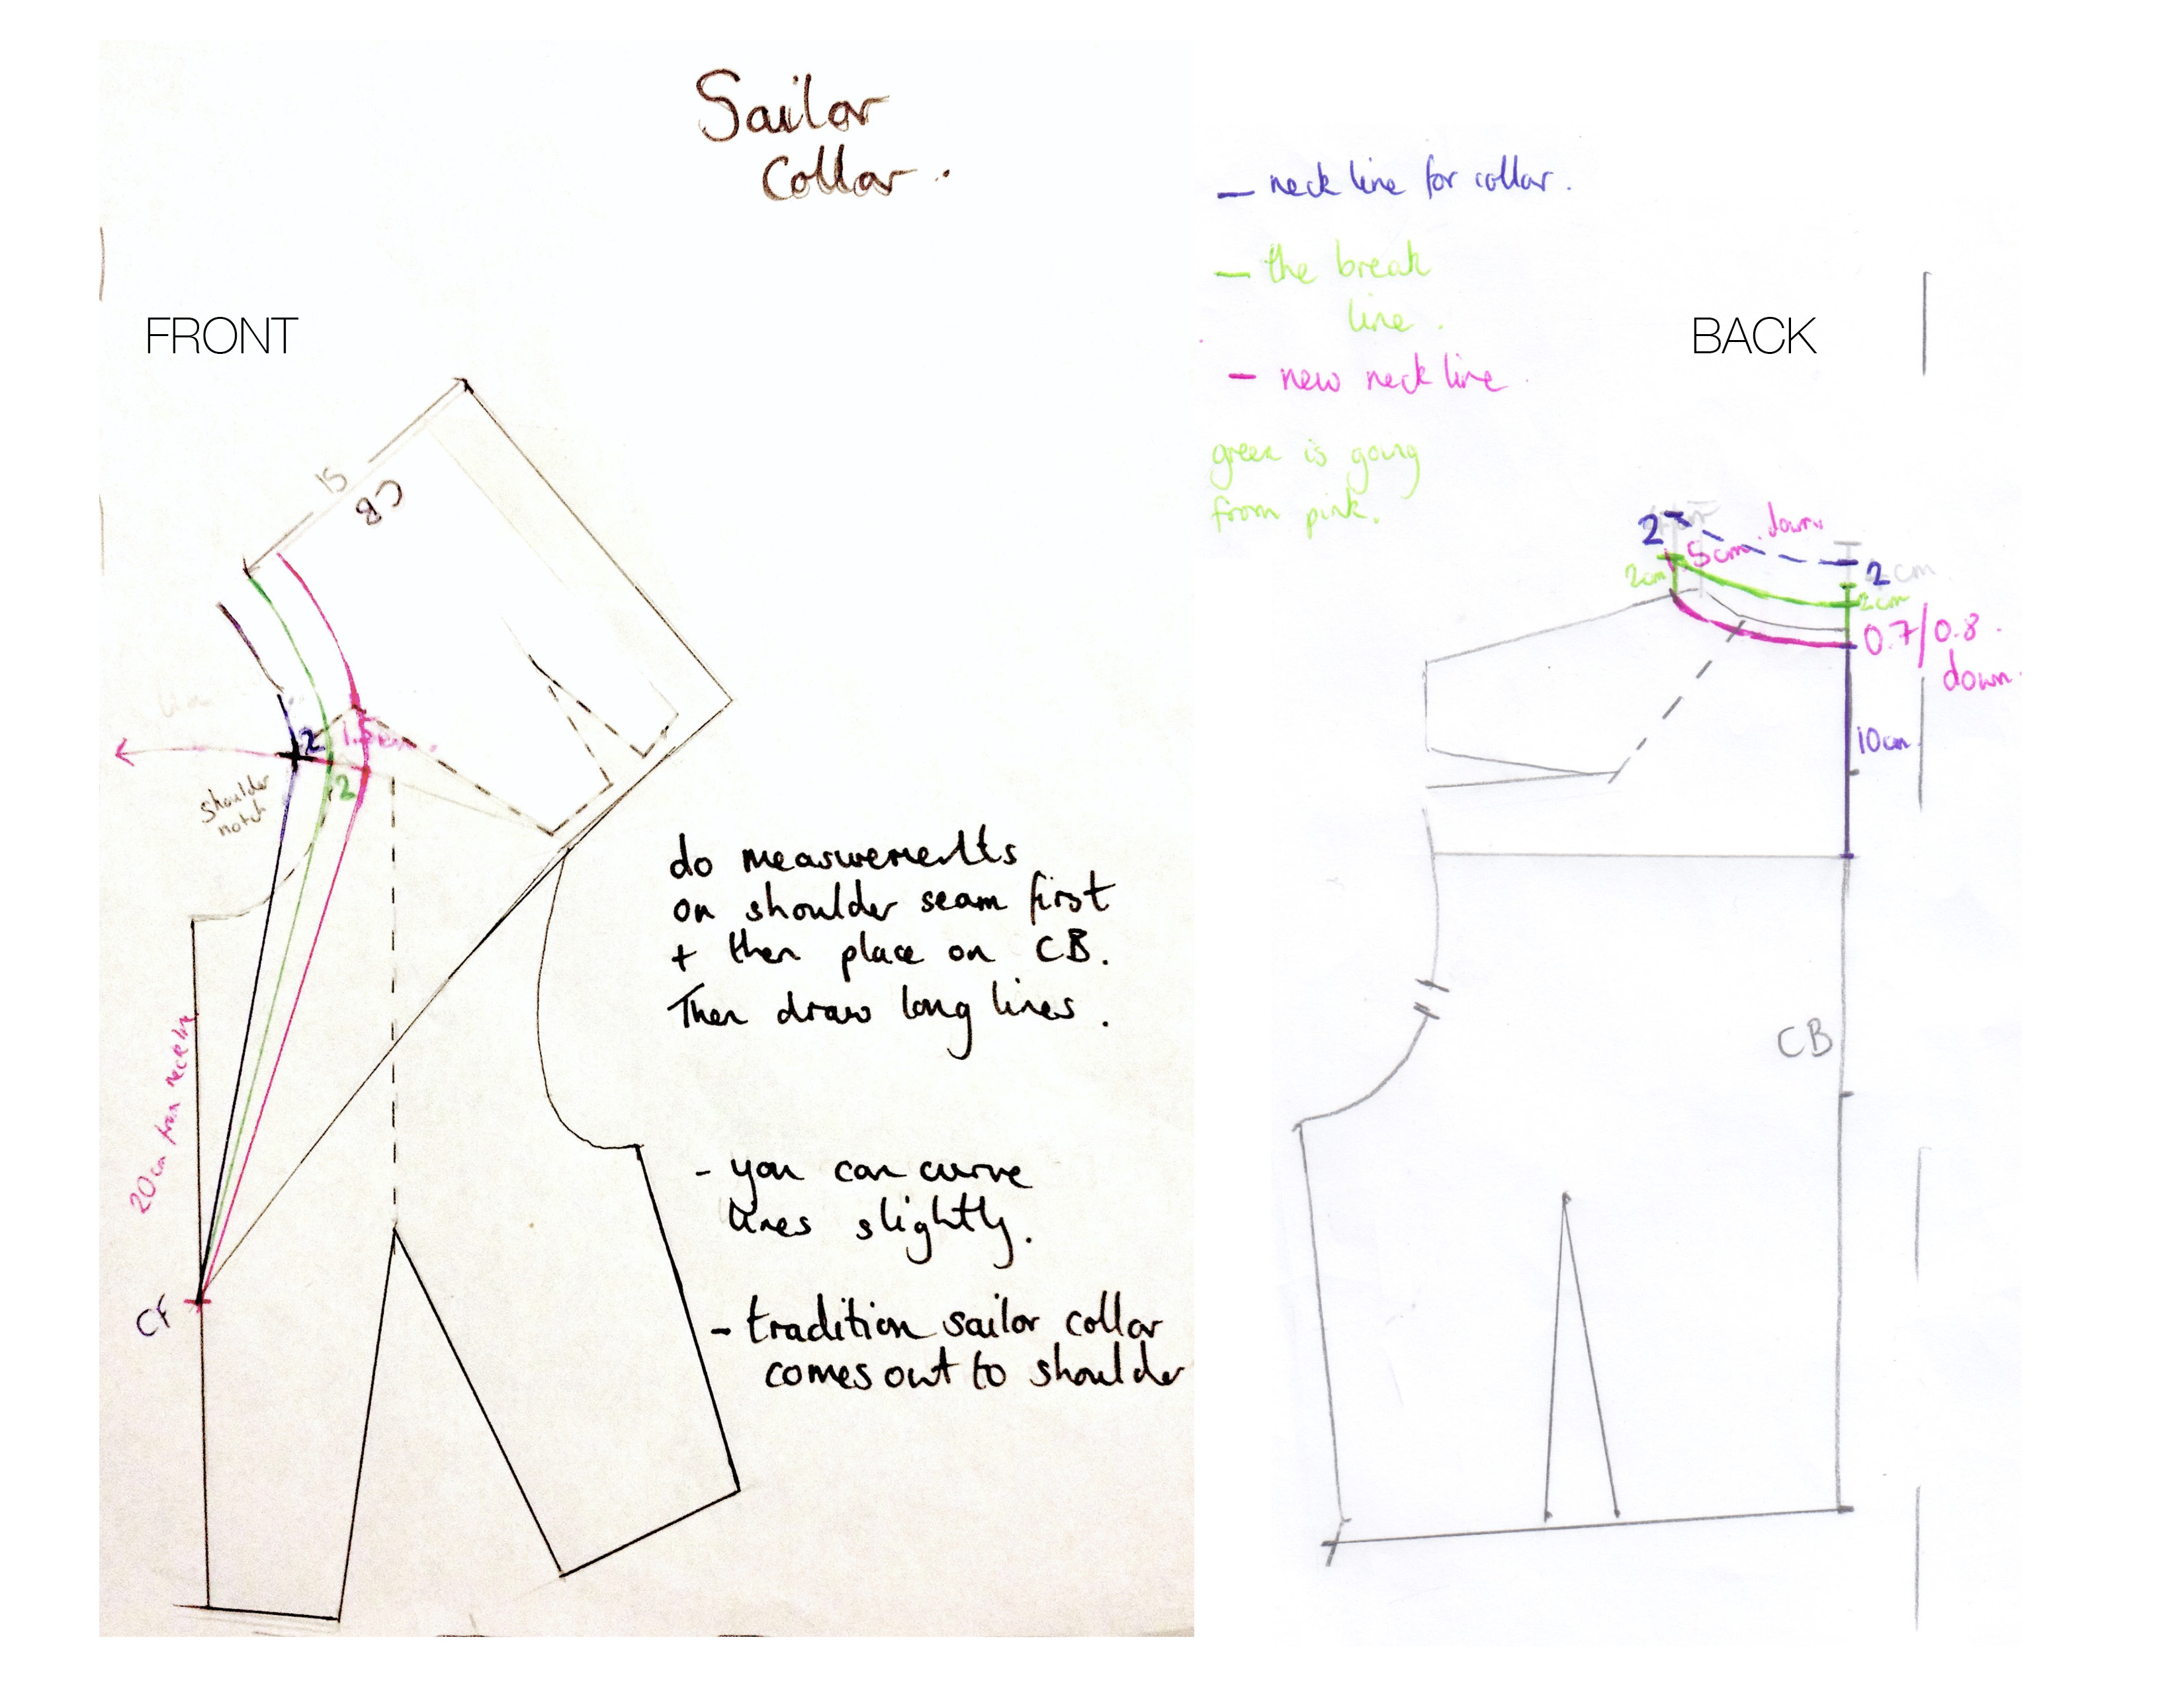 Sailor
Collar.
FRONT
15
CB
2
1.5cm.
2
shoulder
notch
20cm from neckline
CF
do measurements
on shoulder seam first
+ then place on CB.
Then draw long lines.
- you can curve
lines slightly.
- tradition sailor collar
comes out to shoulder
— neck line for collar.
— the break
line.
— new neck line.
green is going
from pink.
BACK
2
5cm
down
2cm
2
cm
2cm
0.7/0.8
down.
10cm
CB